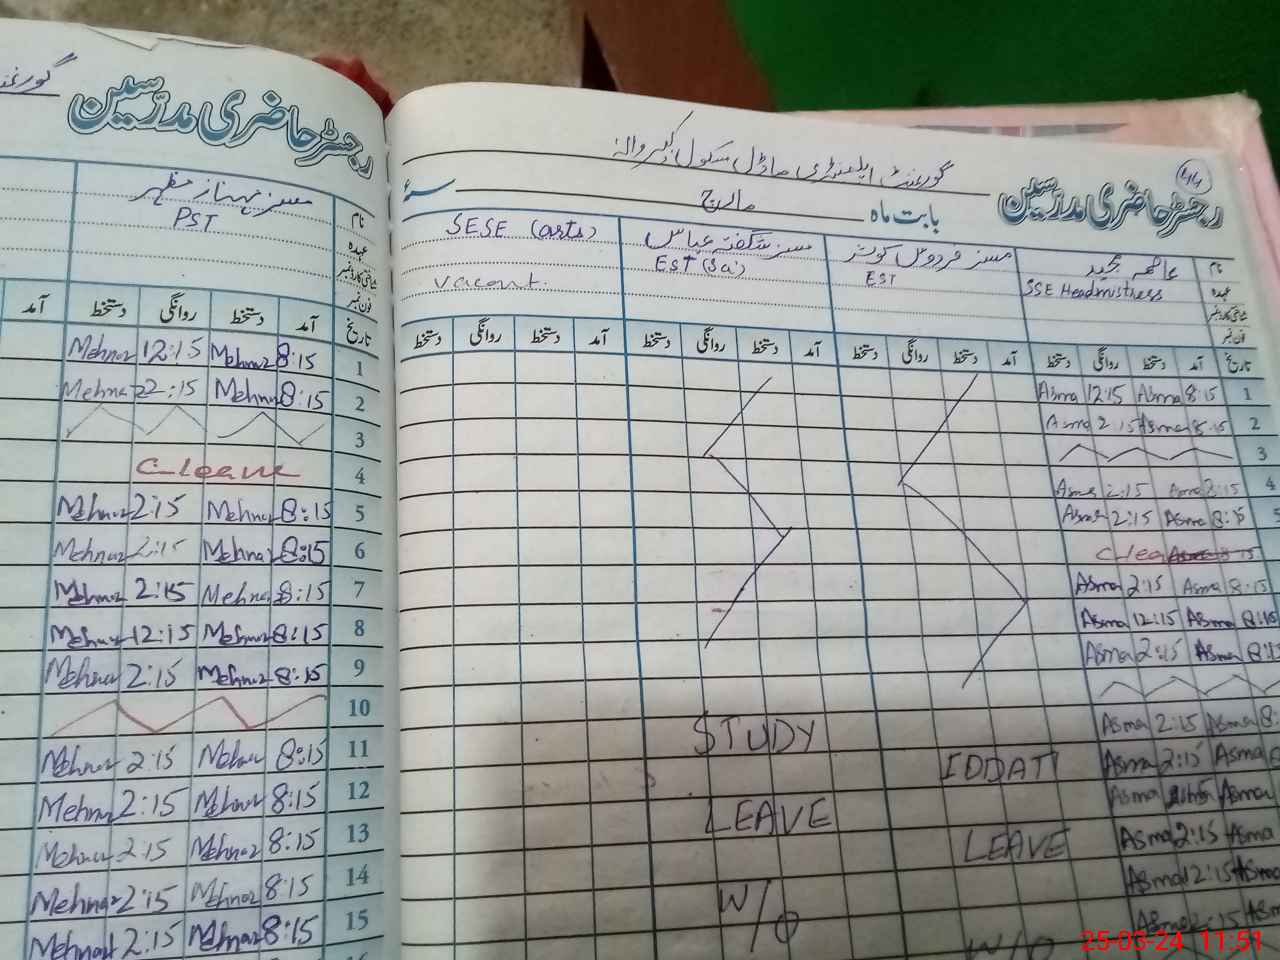 گورنمنٹ
رجسٹر حاضری مدرسین
مسز مہناز مظہر
PST
نام
عہدہ
شناختی کارڈ نمبر
فون نمبر
آمد دستخط روانگی دستخط آمد تاریخ
Mehnaz 12:15 Mehnaz 8:15 1
Mehnaz 2:15 Mehnaz 8:15 2
3
C-leave 4
Mehnaz 2:15 Mehnaz 8:15 5
Mehnaz 2:15 Mehnaz 8:15 6
Mehnaz 2:15 Mehnaz 8:15 7
Mehnaz 12:15 Mehnaz 8:15 8
Mehnaz 2:15 Mehnaz 8:15 9
10
Mehnaz 2:15 Mehnaz 8:15 11
Mehnaz 2:15 Mehnaz 8:15 12
Mehnaz 2:15 Mehnaz 8:15 13
Mehnaz 2:15 Mehnaz 8:15 14
Mehnaz 2:15 Mehnaz 8:15 15
44
رجسٹر حاضری مدرسین
گورنمنٹ ایلیمنٹری ماڈل سکول
بابت ماہ مارچ سنہء
نام عاصمہ مجید مسز فردوس کوثر مسز شگفتہ عباس SESE (arts)
عہدہ SSE Headmistress EST EST (Sci)
شناختی کارڈ نمبر vacant.
فون نمبر
تاریخ آمد دستخط روانگی دستخط آمد دستخط روانگی دستخط آمد دستخط روانگی دستخط آمد دستخط روانگی دستخط
Asma 12:15 Asma 8:15 1
Asma 2:15 Asma 8:15 2
3
Asma 2:15 Asma 8:15 4
Asma 2:15 Asma 8:15 5
C-lea
Asma 2:15 Asma 8:15
Asma 12:15 Asma 8:15
Asma 2:15 Asma 8:15
STUDY Asma 2:15 Asma 8:
IDDAT Asma 2:15 Asma
LEAVE Asma Asma
LEAVE Asma 2:15 Asma
W/O Asma 12:15 Asma
W/O Asma 2:15 Asma
25-03-24 11:51